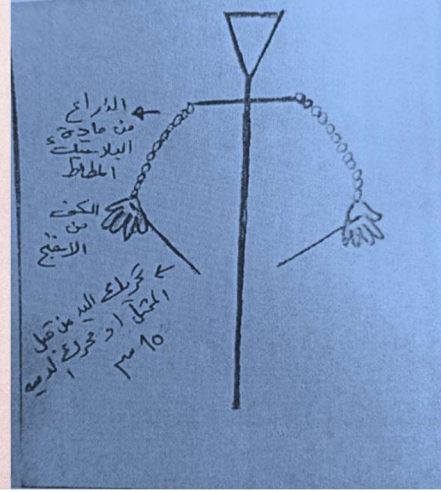 الذراع
من مادة
البلاستك
المطاط
الكف
من
الاسفنج
تحريك اليد من قبل
الممثل او محرك
١٥ سم